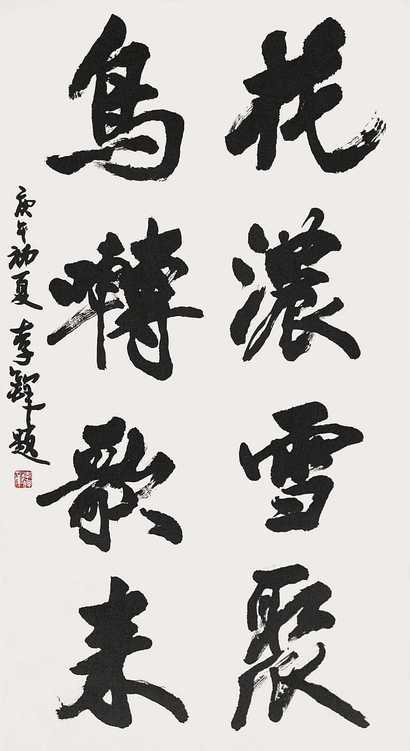 花濃雪聚
鳥囀歌来
庚午初夏 李鐸題